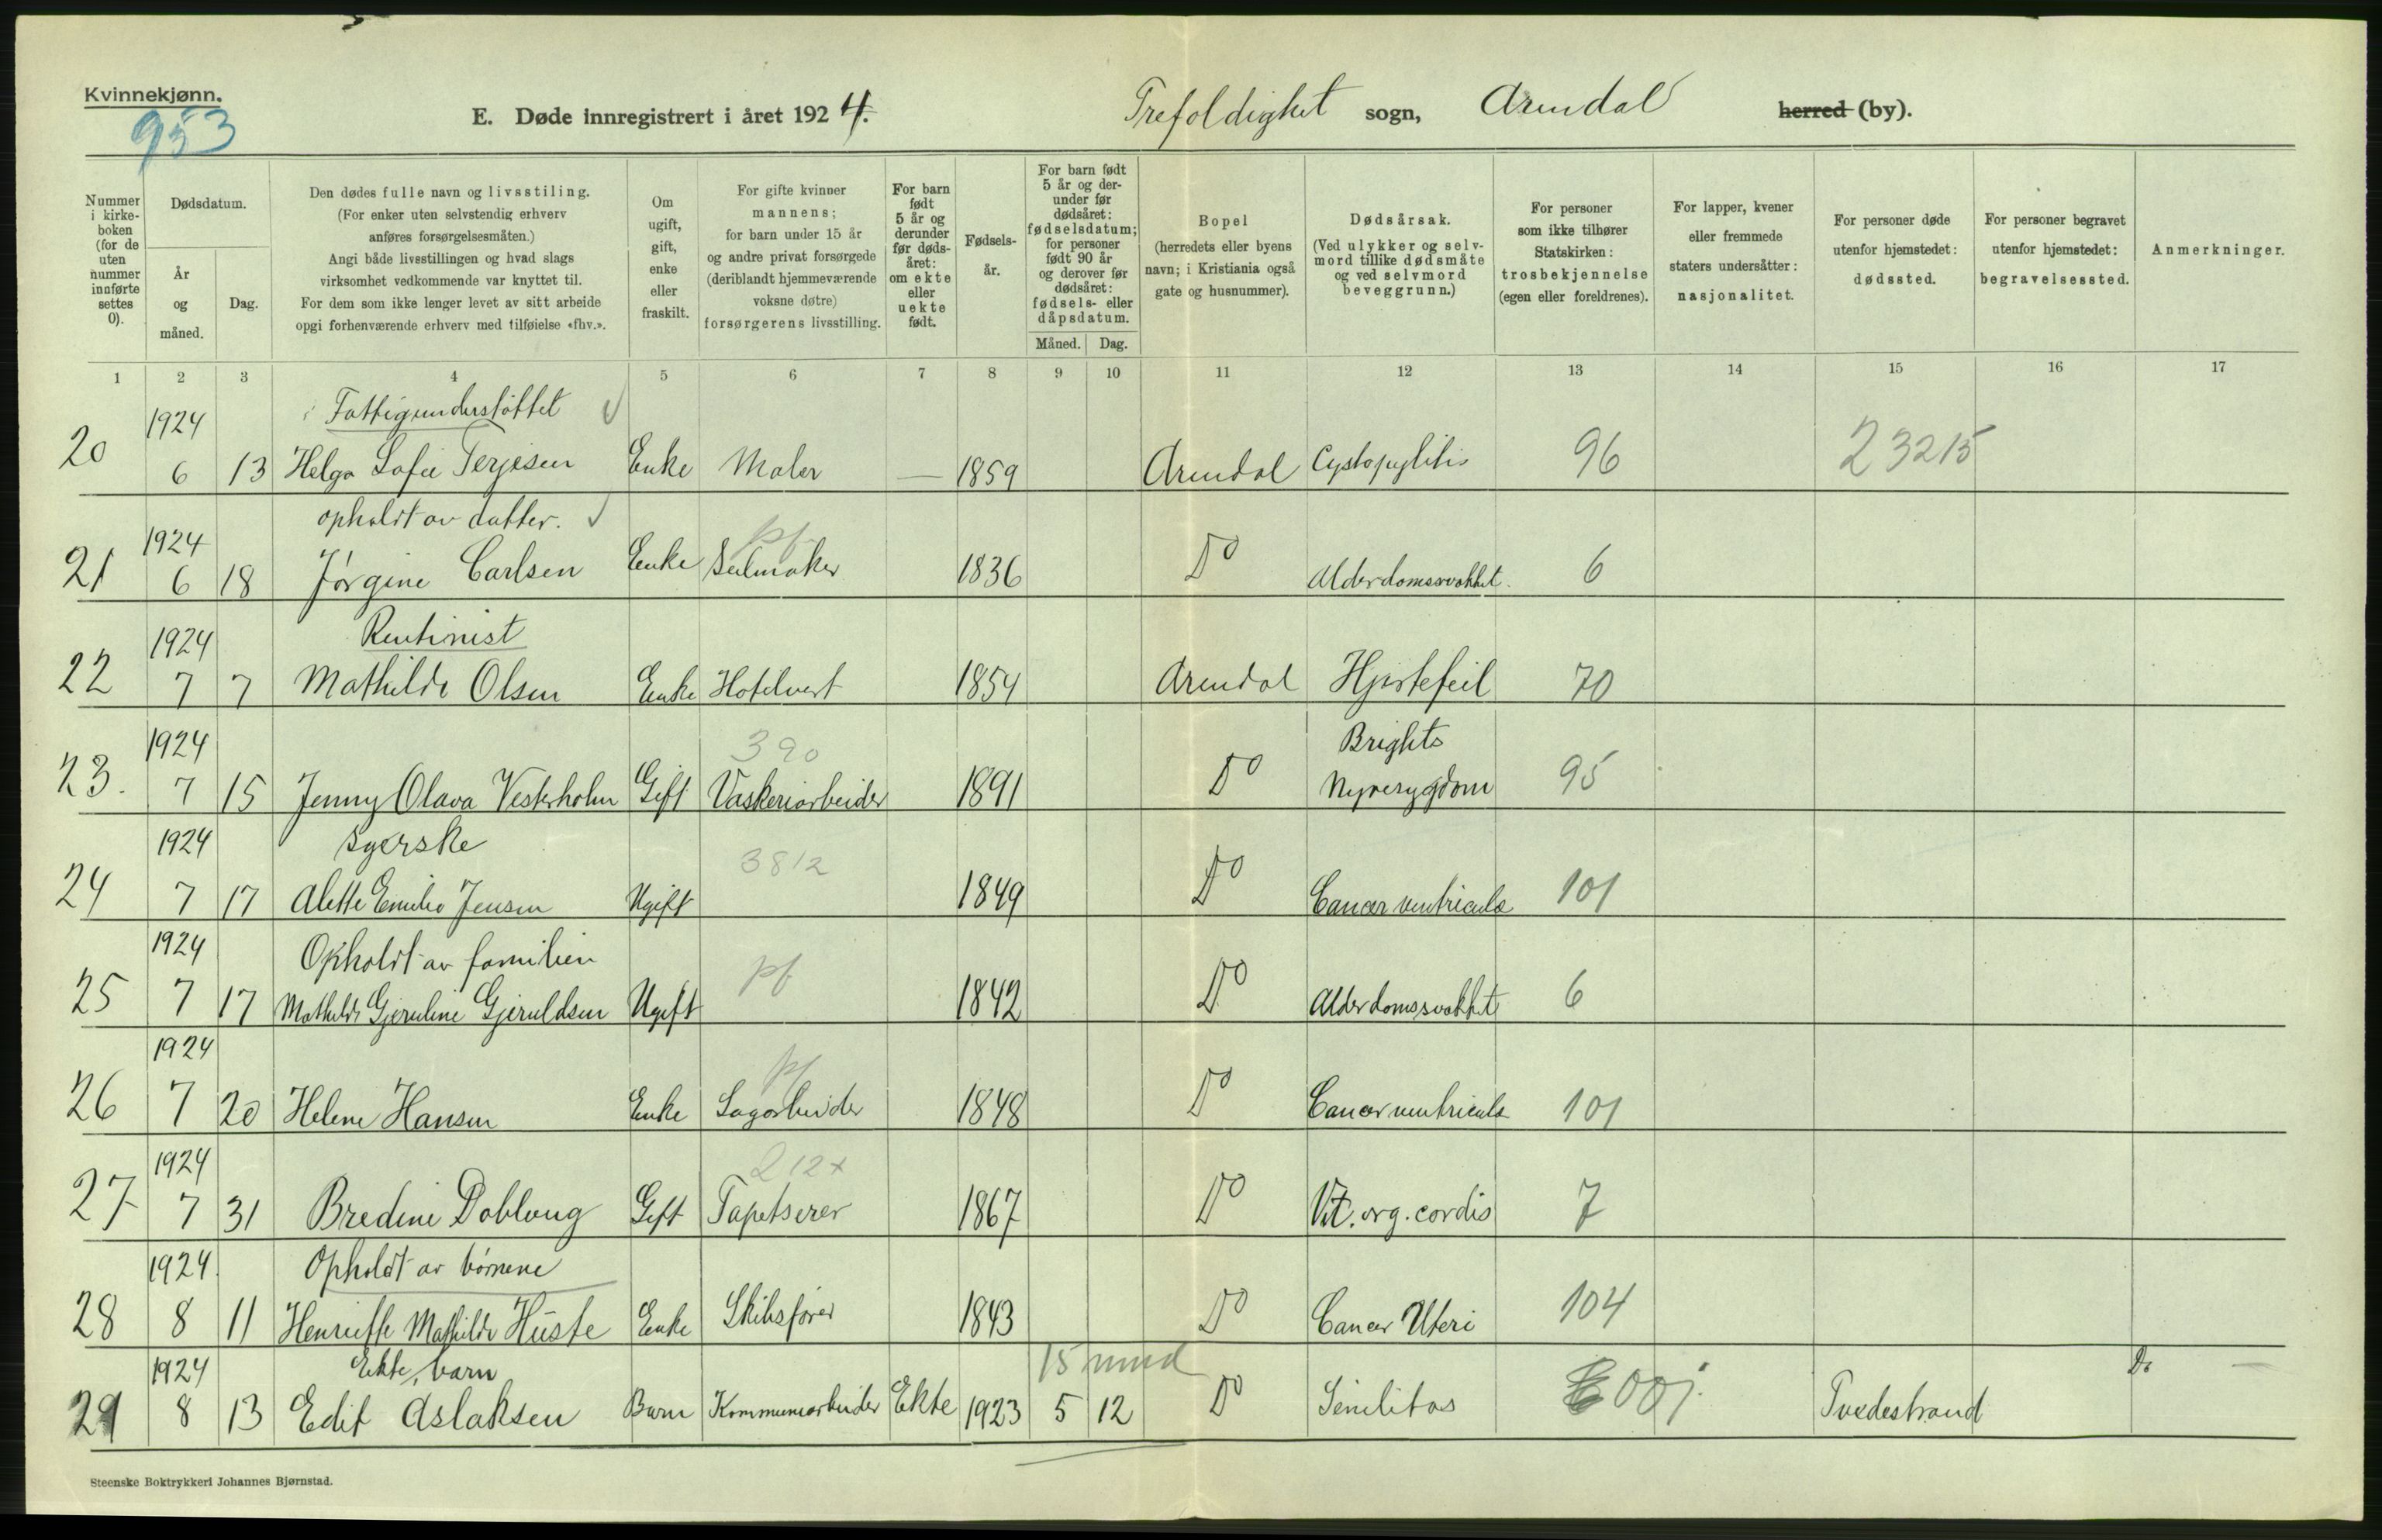 Kvinnekjønn.
953
E. Døde innregistrert i året 1924. Trefoldighet sogn, Arendal herred (by).
Nummer i kirkeboken (for de uten nummer innførte settes 0).
Dødsdatum.
År og måned.
Dag.
Den dødes fulle navn og livsstiling.
(For enker uten selvstendig erhverv
anføres forsørgelsesmåten.)
Angi både livsstillingen og hvad slags
virksomhet vedkommende var knyttet til.
For dem som ikke lenger levet av sitt arbeide
opgi forhenværende erhverv med tilføielse «fhv.».
Om ugift, gift, enke eller fraskilt.
For gifte kvinner
mannens;
for barn under 15 år
og andre privat forsørgede
(deriblandt hjemmeværende
voksne døtre)
forsørgerens livsstilling.
For barn født 5 år og derunder før dødsåret: om ekte eller uekte født.
Fødselsår.
For barn født 5 år og derunder før dødsåret: fødselsdatum; for personer født 90 år og derover før dødsåret: fødsels- eller dåpsdatum.
Måned. Dag.
Bopel
(herredets eller byens
navn; i Kristiania også
gate og husnummer).
Dødsårsak.
(Ved ulykker og selvmord tillike dødsmåte og ved selvmord beveggrunn.)
For personer
som ikke tilhører
Statskirken:
trosbekjennelse
(egen eller foreldrenes).
For lapper, kvener
eller fremmede
staters undersåtter:
nasjonalitet.
For personer døde
utenfor hjemstedet:
dødssted.
For personer begravet
utenfor hjemstedet:
begravelsessted.
Anmerkninger.
1 2 3 4 5 6 7 8 9 10 11 12 13 14 15 16 17
1924 Fattigunderstöttet
20 6 13 Helga Sofie Terjesen Enke Maler — 1859 Arendal Cystopyelitis 96 23215
1924 opholdt av datter. pf
21 6 18 Jörgine Carlsen Enke Seilmaker 1836 Do Alderdomssvakhet. 6
1924 Rentinist
22 7 7 Mathilde Olsen Enke Hotelvert 1854 Arendal Hjertefeil 70
1924 390 Brights
23. 7 15 Jenny Olava Vesterholm Gift Vaskeriarbeider 1891 Do Nyresygdom 95
1924 Syerske 3812
24 7 17 Alette Emilie Jensen Ugift 1849 Do Cancer ventriculi 101
1924 Opholdt av familien pf
25 7 17 Mathilde Gjeruline Gjeruldsen Ugift 1842 Do Alderdomssvakhet 6
1924 pf
26 7 20 Helene Hansen Enke Sagarbeider 1848 Do Cancer ventriculi 101
1924 212x
27 7 31 Bredine Doblong Gift Tapetserer 1867 Do Vit. org. cordis 7
1924. Opholdt av börnene
28 8 11 Henriette Mathilde Hüste Enke Skibsförer 1843 Do Cancer Uteri 104
1924 Ekte, barn 15 mnd Do —
29 8 13 Edit Aslaksen Barn Kommunearbeider Ekte 1923 5 12 Do Senilitas Tvedestrand
Steenske Boktrykkeri Johannes Bjørnstad.